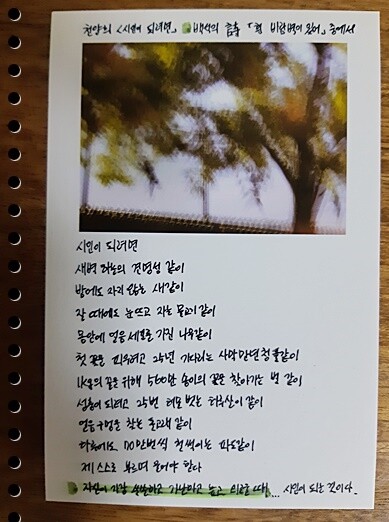 천양희 <시인이 되려면> 백석의 흰 「흰 바람벽이 있어」 중에서
시인이 되려면
새벽 하늘의 견명성 같이
밤에도 자지 않는 새같이
잘 때에도 눈뜨고 자는 물고기 같이
몸안에 얼음세포를 가진 나무같이
첫 꽃을 피우려고 25년 기다리는 사막만년청풀같이
1kg의 꿀을 위해 560만 송이의 꽃을 찾아가는 벌 같이
성충이 되려고 25번 허물 벗는 하루살이 같이
얼음구멍을 찾는 돌고래 같이
하루에도 70만번씩 철썩이는 파도같이
제 스스로 부르며 울어야 한다
자신이 가장 쓸쓸하고 가난하고 높고 외로울 때... 시인이 되는 것이다.